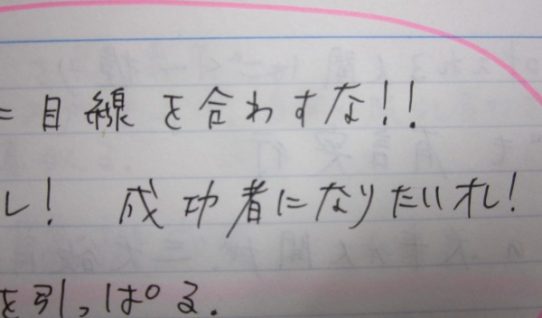 に目線を合わすな!!
し! 成功者になりたいオレ!
を引っぱる.